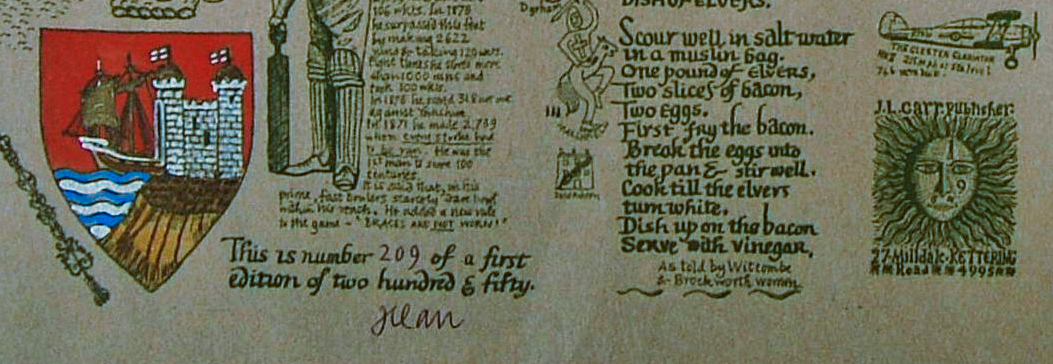 106 wkts. In 1873
he surpassed this feat
by making 2622
runs & taking 120 wkts.
eight times he scored more
than 1000 runs and
took 100 wkts.
In 1876 he scored 318 not out
against Yorkshire
In 1871 he made 2,739
when
to be 
He was the
1st man to score 100
centuries
It is said that, in his
prime, fast bowlers scarcely
within his reach. He added a new rule
to the game - "BRACES ARE NOT WORN!"
This is number 209 of a first
edition of two hundred & fifty.
DISH OF ELVERS.
Scour well in salt water
in a muslin bag.
One pound of elvers,
Two slices of bacon,
Two eggs.
First fry the bacon.
Break the eggs into
the pan & stir well.
Cook till the elvers
turn white.
Dish up on the bacon
Serve with vinegar,
As told by Witcombe
& Brockworth women
THE GLOSTER GLADIATOR
J.L. Carr, Publisher:
27 Milldale·KETTERING
Road